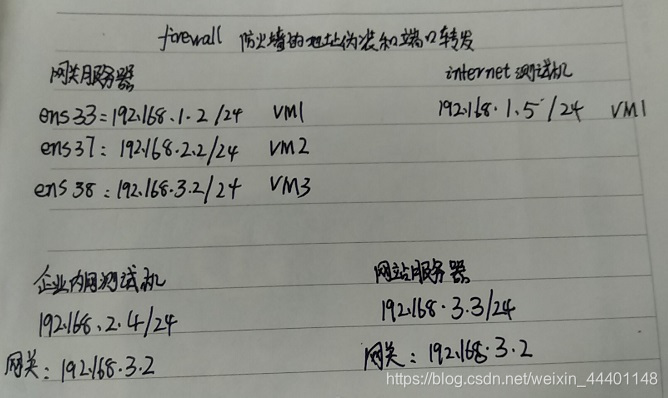 firewall 防火墙的地址伪装和端口转发
网关服务器 internet 测试机
ens33:192.168.1.2/24 VM1 192.168.1.5/24 VM1
ens37: 192.168.2.2/24 VM2
ens38:192.168.3.2/24 VM3
企业内网测试机 网站服务器
192.168.2.4/24 192.168.3.3/24
网关:192.168.3.2 网关:192.168.3.2
https://blog.csdn.net/weixin_44401148